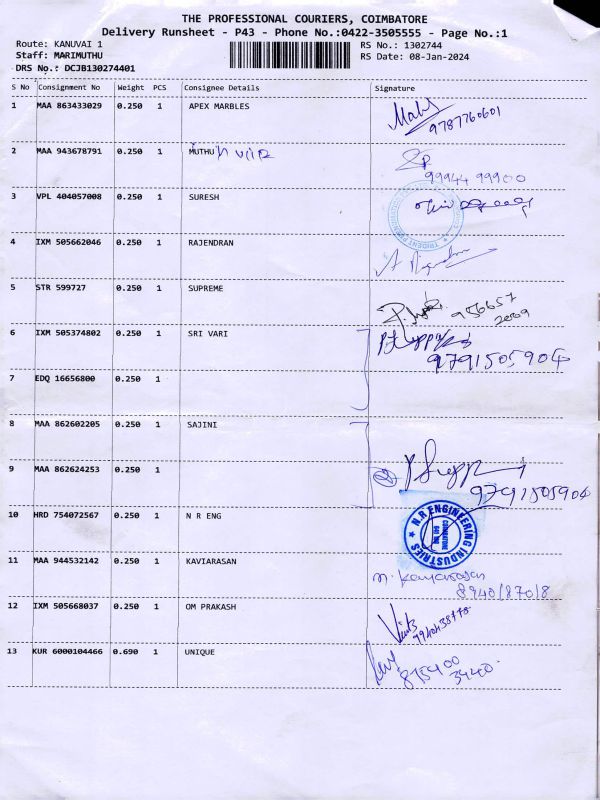 THE PROFESSIONAL COURIERS, COIMBATORE
Delivery Runsheet - P43 - Phone No.:0422-3505555 - Page No.:1
Route: KANUVAI 1 RS No.: 1302744
Staff: MARIMUTHU RS Date: 08-Jan-2024
DRS No.: DCJB130274401
S No Consignment No Weight PCS Consignee Details Signature
1 MAA 863433029 0.250 1 APEX MARBLES
9787760601
2 MAA 943678791 0.250 1 MUTHU
99944 99900
3 VPL 404057008 0.250 1 SURESH
4 IXM 505662046 0.250 1 RAJENDRAN
5 STR 599727 0.250 1 SUPREME
956657
2009
6 IXM 505374802 0.250 1 SRI VARI
9791505904
7 EDQ 16656800 0.250 1
8 MAA 862602205 0.250 1 SAJINI
9 MAA 862624253 0.250 1
9791505904
10 HRD 754072567 0.250 1 N R ENG
N.R ENGINEERING INDUSTRIES
COIMBATORE
11 MAA 944532142 0.250 1 KAVIARASAN
8940187018
12 IXM 505668037 0.250 1 OM PRAKASH
13 KUR 6000104466 0.690 1 UNIQUE
875400
3440